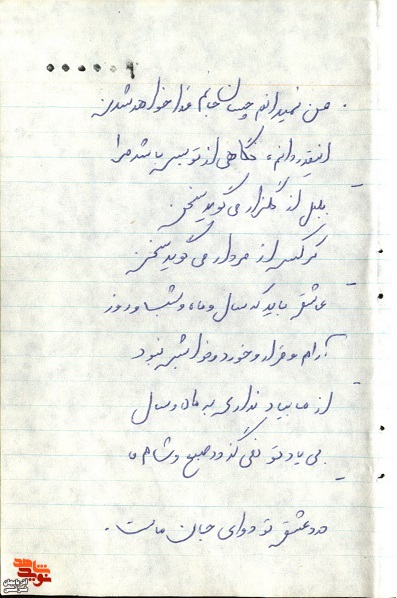 من نمیدانم چسان جانم فدا خواهد شدن
اینقدر دانم، نگاهی از تو بس باشد مرا
بلبل از گلزار می گوید سخن
کرکس از مردار می گوید سخن
عاشق باید که سال و ماه و شب و روز
آرام و قرار و خورد و خوابش نبود
از ما بیاد نداری به ماه و سال
بی یاد تو نمی گذرد صبح و شام ما
درد عشق تو دوای جان ماست.
نوید شاهد
آذربایجان شرقی